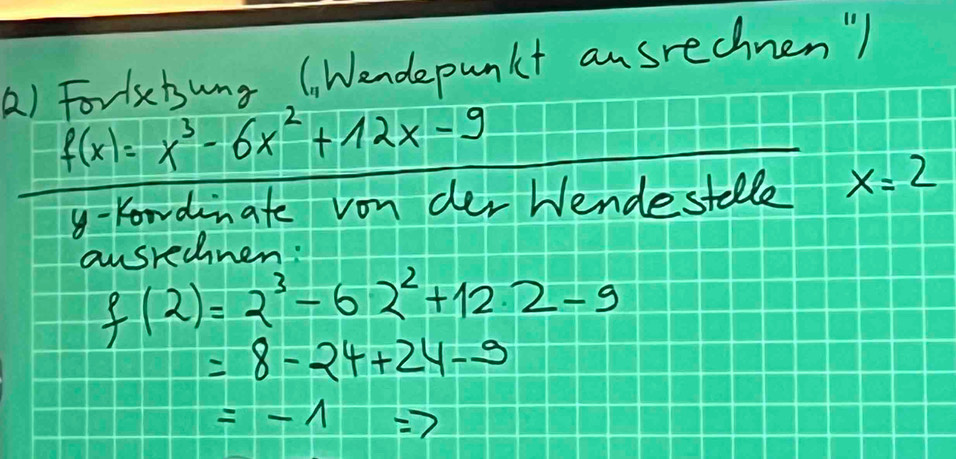 a) Fortsetzung („Wendepunkt ausrechnen")
f(x) = x³ - 6x² + 12x - 9
y-Koordinate von der Wendestelle x = 2
ausrechnen:
f(2) = 2³ - 6·2² + 12·2 - 9
= 8 - 24 + 24 - 9
= -1 =>